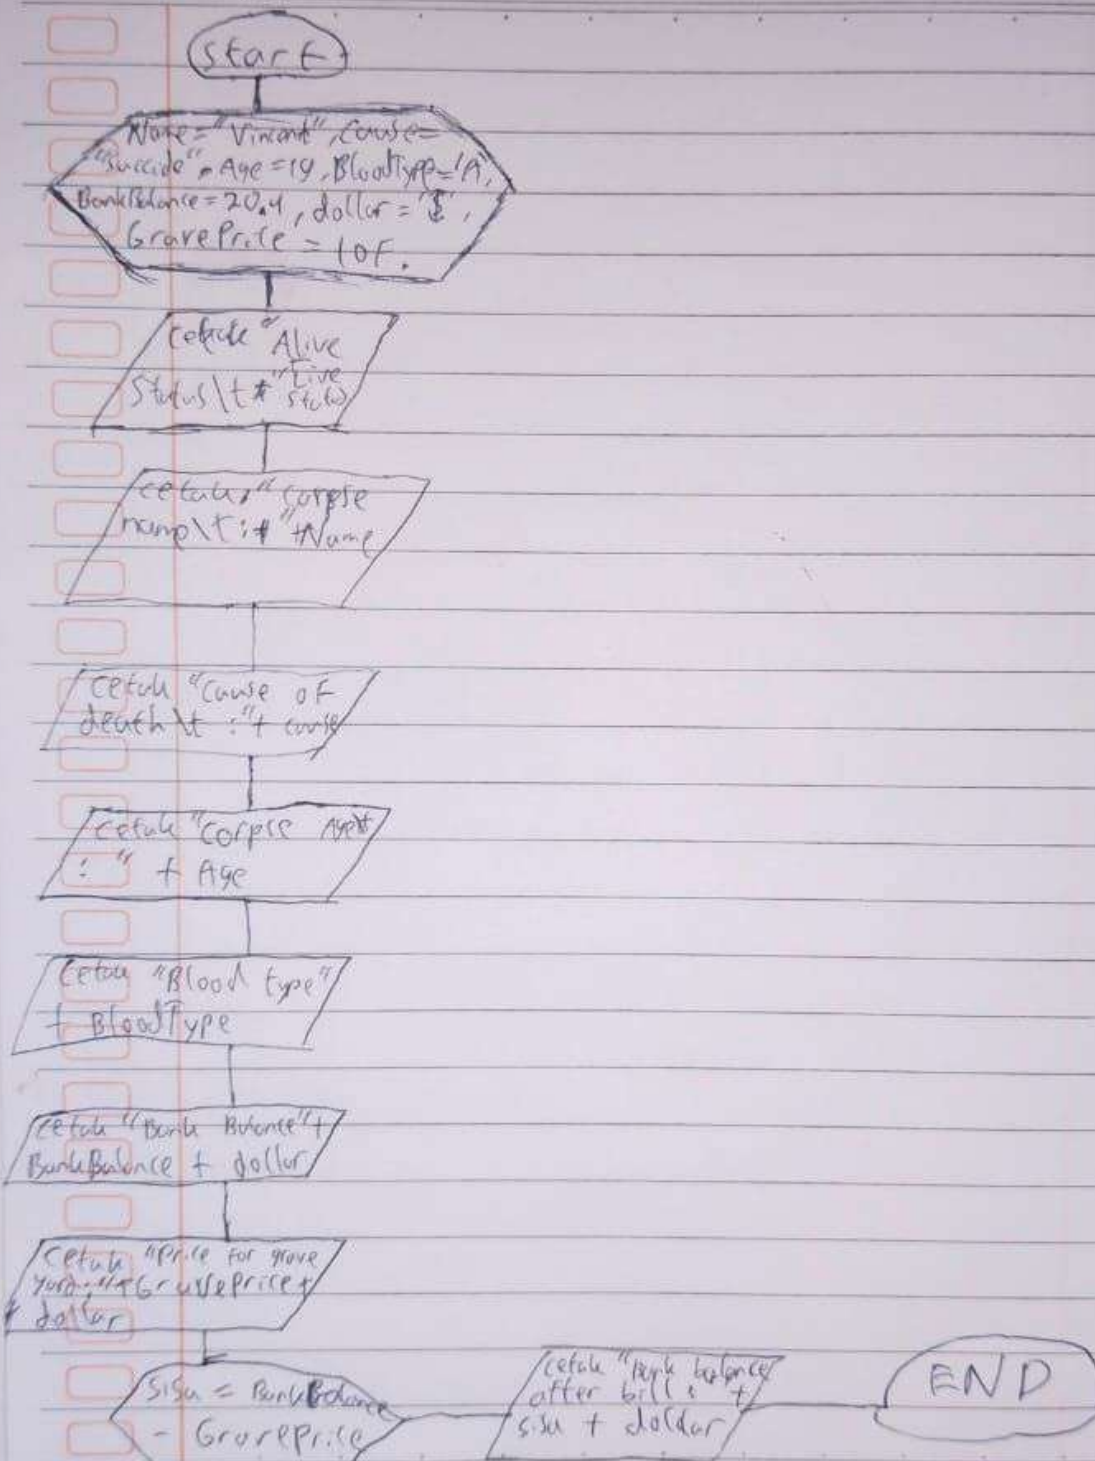 Start
Name = "Vincent", cause =
"Succide", Age = 19, BloodType = 'A',
BankBalance = 20.4, dollar = '$',
GravePrice = 10F.
cetak "Alive
Status\t "Live
Status
cetak, "Corpse
name\t : " +Name
cetak "Cause of
death\t : "+ cause
cetak "Corpse Age\t
: " + Age
cetak "Blood type"
+ BloodType
cetak "Bank Balance" +
BankBalance + dollar
cetak "Price for grave
yard : "+ GravePrice +
dollar
sisa = BankBalance
- GravePrice
cetak "Bank balance
after bill : " +
sisa + dollar
END